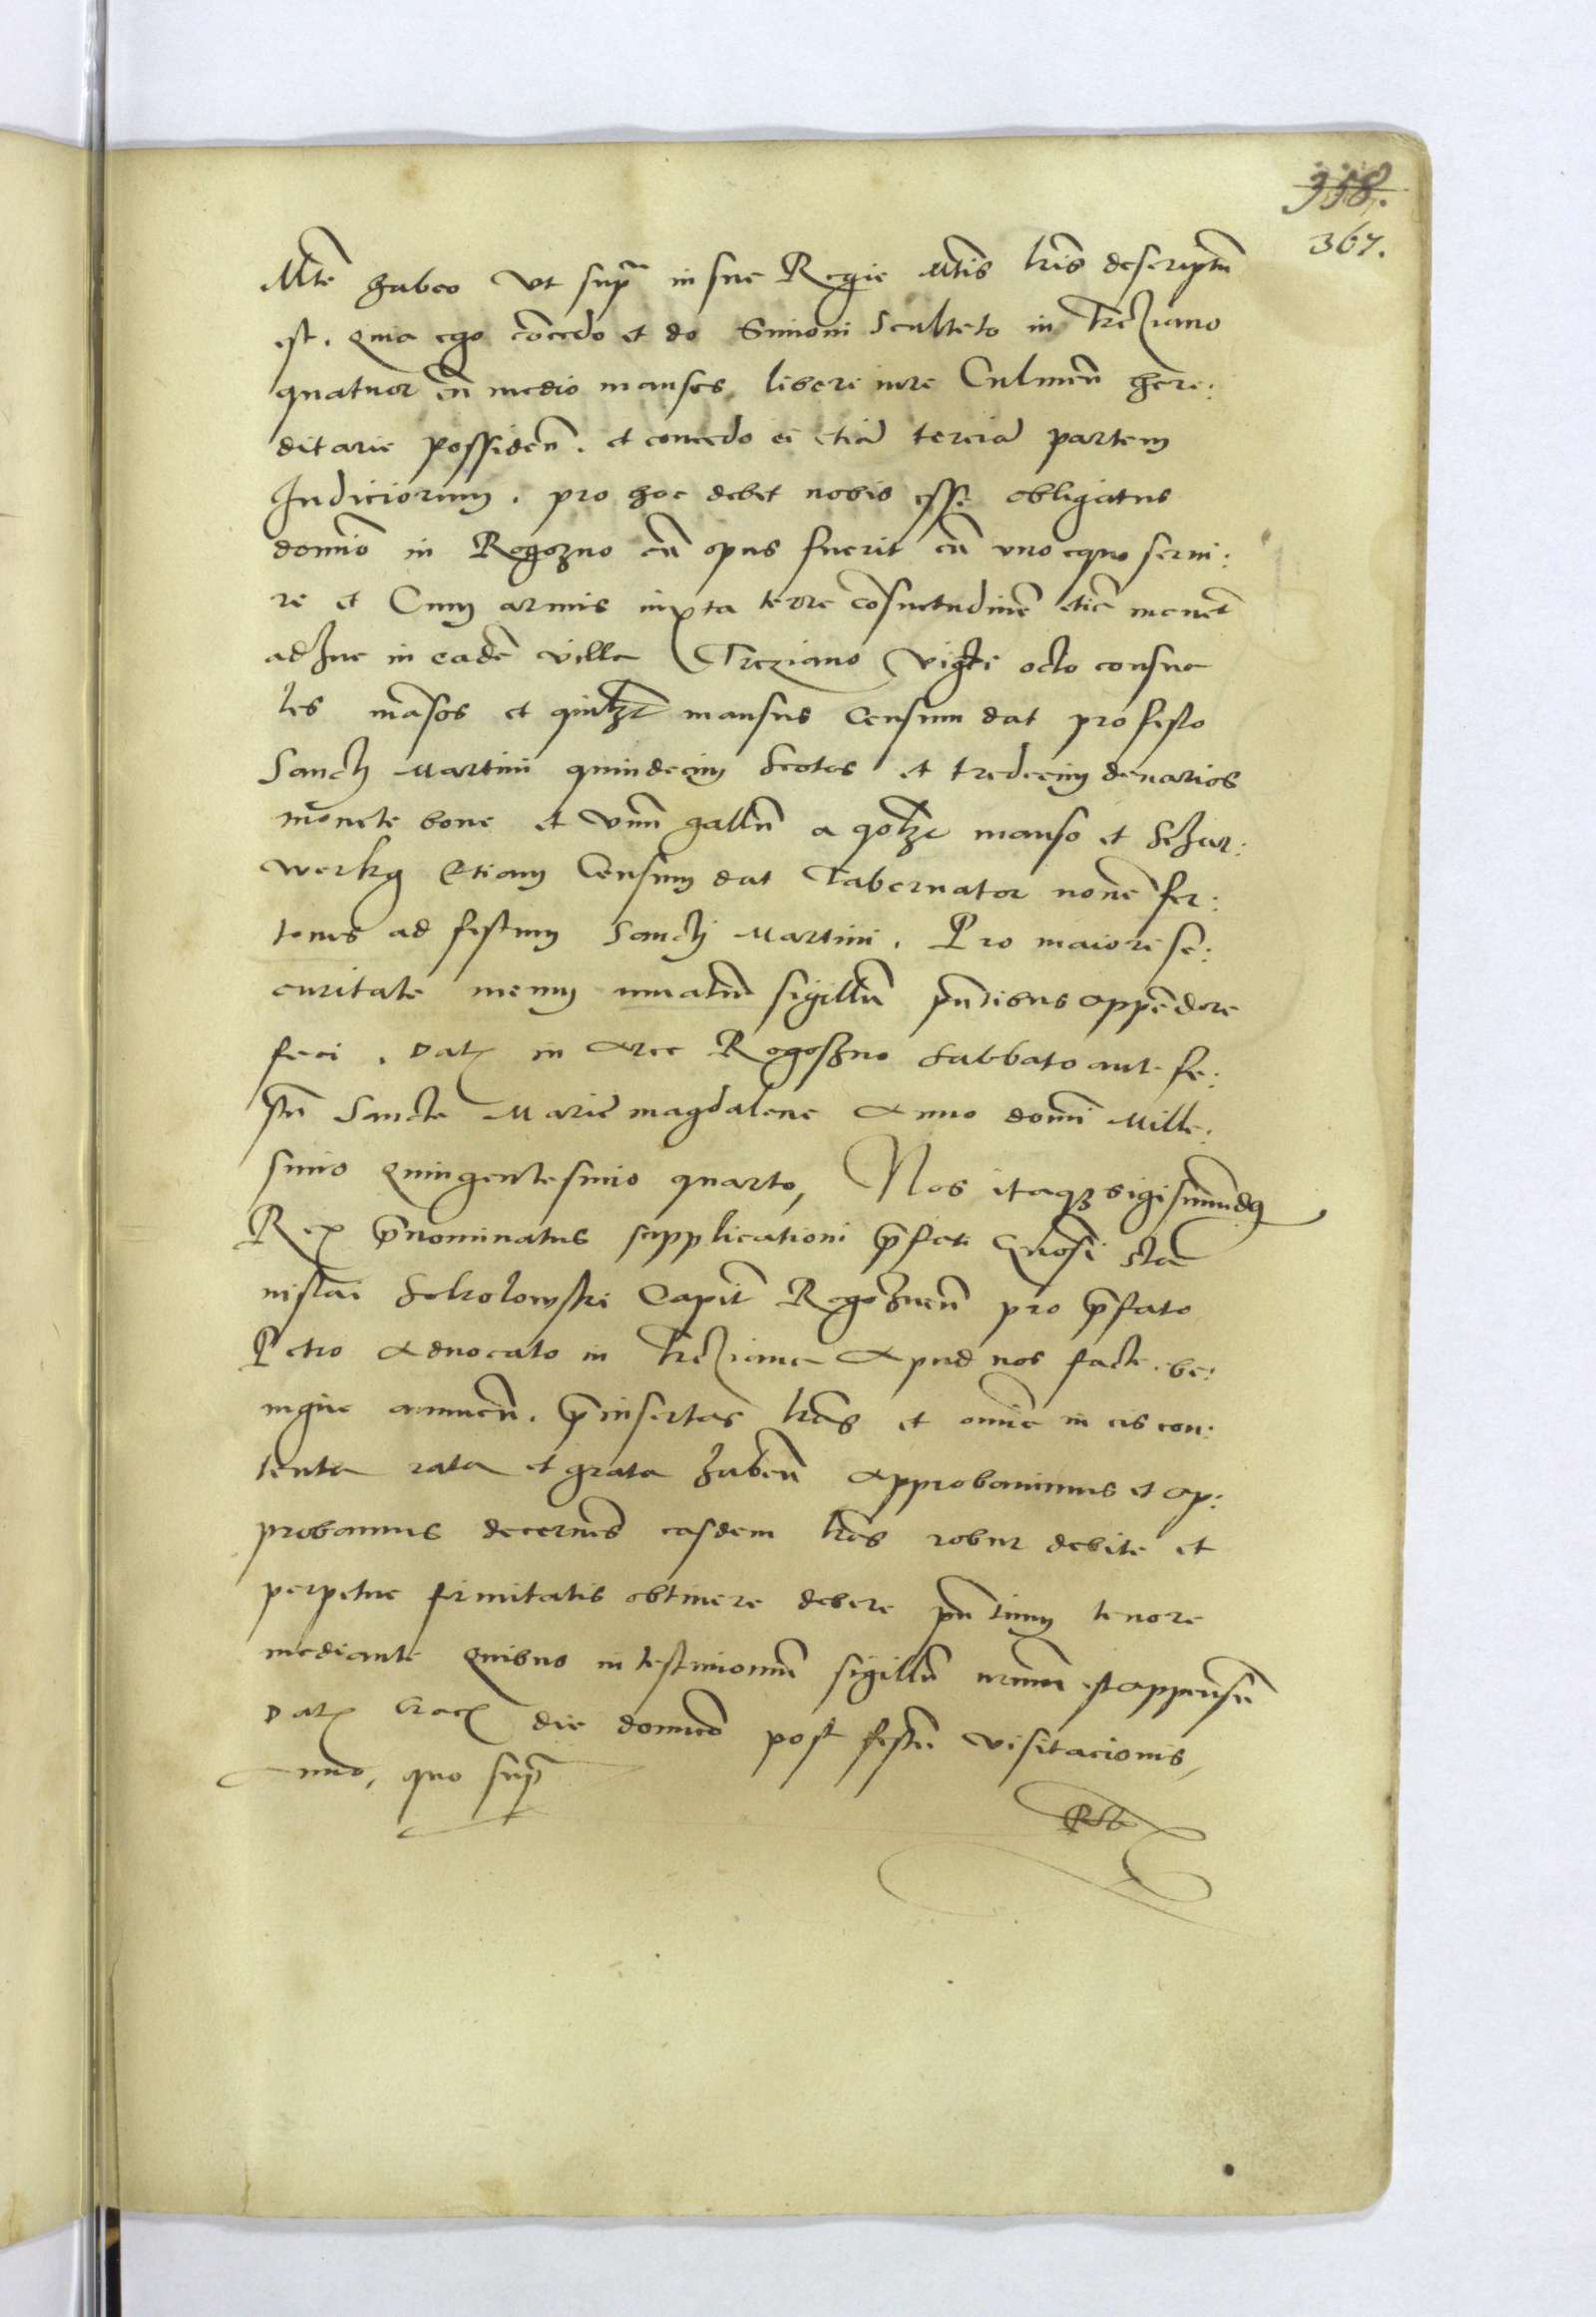 358.
367.
Mte habeo vt supra in sue Regie Mtis lris descriptũ
est. Quia ego cõcedo et do Simoni Sculteto in Trziano
quatuor cũ medio mansos, libere iure Culmeñ here:
ditarie possideñ. et concedo ei etiã terciã partem
Iudiciorum. pro hoc debet nobis esse obligatus
domio in Rogozno cũ opus fuerit cũ vno equo serui:
re et Cum armis iuxta terre cõsuetudinẽ etiã
adhuc in eadẽ villa Trziano vigiti octo
les mãsos et quilzt mansus Censum dat pro festo
Sancti Martini quindecim Scotos et tredecim denarios
monete bone et vnũ gallũ a qolzt manso et Schar:
werkg Etiam Censum dat Tabernator nouẽ fer:
tones ad festum Sancti Martini. Pro maiori se:
curitate meum sigillũ pñtibus appẽdere
feci. Dat in Arce Rogoszno Sabbato ante fe:
stũ Sancte Marie magdalene Anno domi Mille:
simo Quingentesimo quarto, Nos itaqz Sigismundq
Rex p̃nominatus supplicationi p̃fati Gnosi Sta
nislai Sokolowski Capit Rogozneñ pro p̃fato
Petro Aduocato in Trziano Apud nos facte be:
nigne annueñ. p̃insertas lras et omia in eis con:
tenta rata et grata habeñ Approbauimus et ap:
probamus decernẽs easdem lras robur debite et
perpetue firmitatis obtinere debere pñtium tenore
mediante Quibus in testimoniũ sigillũ nrum est appensũ
Dat Crac die domico post festũ visitacionis,
Anno, quo supra